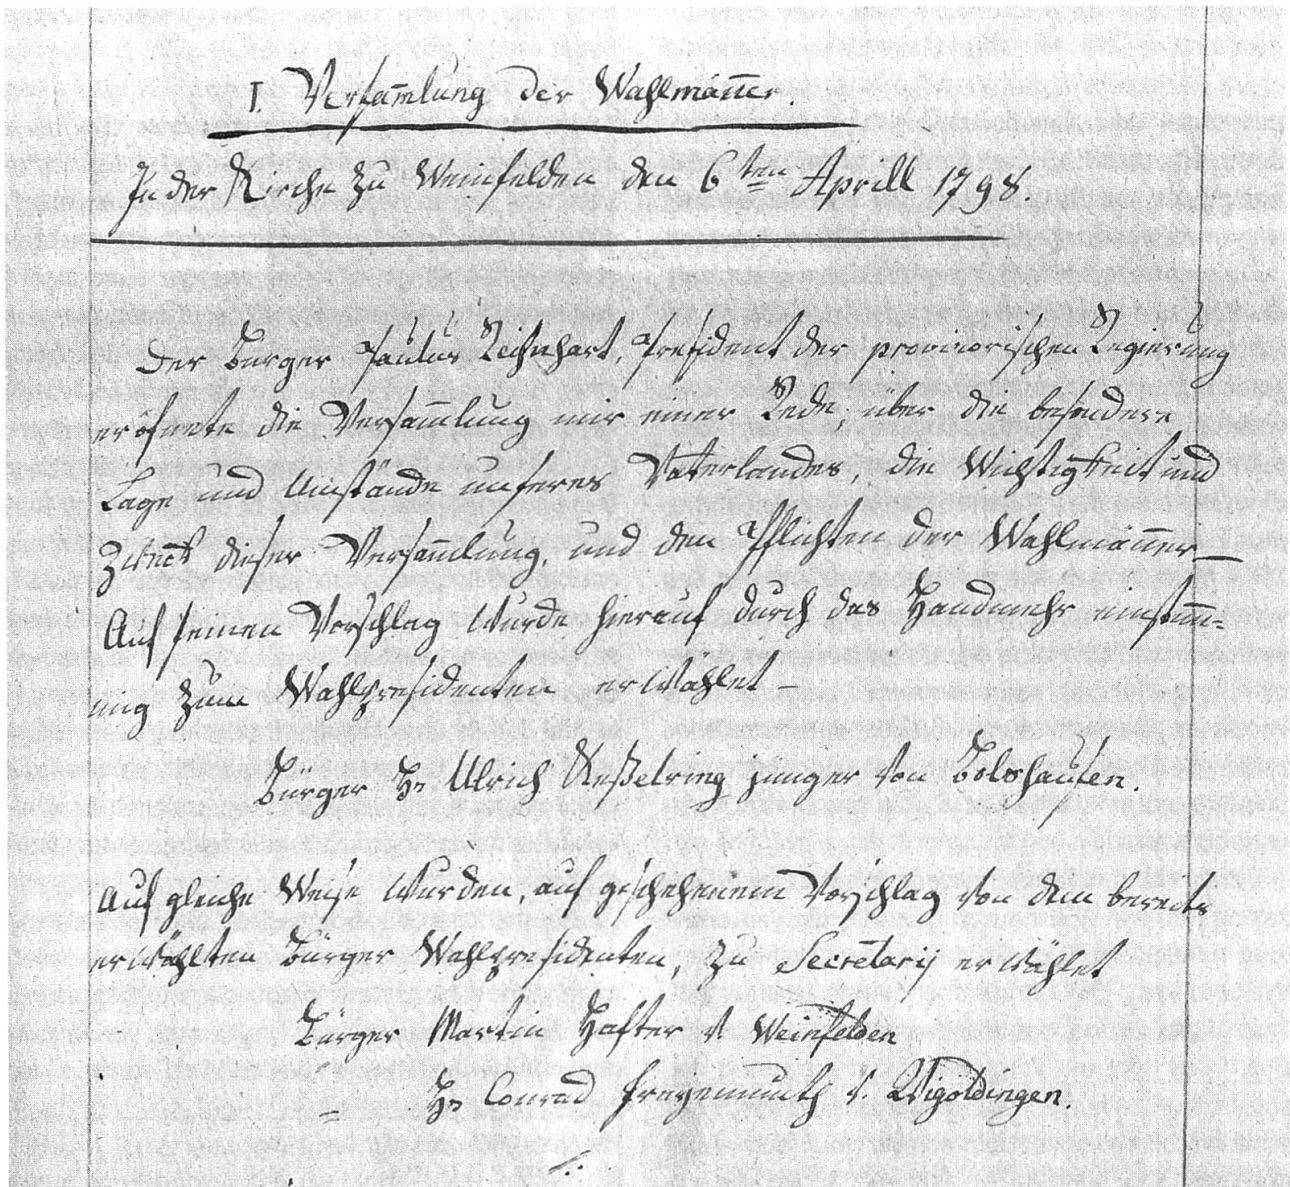 I. Versam̅lung der Wahlmäner.
In der Kirche zu Weinfelden den 6ten Aprill 1798.
Der Burger Paulus Reinhart, President der provisorischen Regierung
eröfnete die Versam̅lung mit einer Rede, über die besondere
Lage und Umstände unseres Vaterlandes, die Wichtigkeit und
Zweck dieser Versam̅lung, und den Pflichten der Wahlmän̅er —
Auf seinen Vorschlag wurde hierauf durch das Handmehr einstim̅=
mig zum Wahlpresidenten erwählet —
Bürger Hs Ulrich Keßelring junger von Boltshausen.
Auf gleiche Weise wurden, auf geschehenem Vorschlag von dem bereits
erwählten Bürger Wahlpresidenten, zu Secretarij erwählet
Bürger Martin Hafter v Weinfelden
= Hs Conrad Freyenmuth v. Wigoldingen.